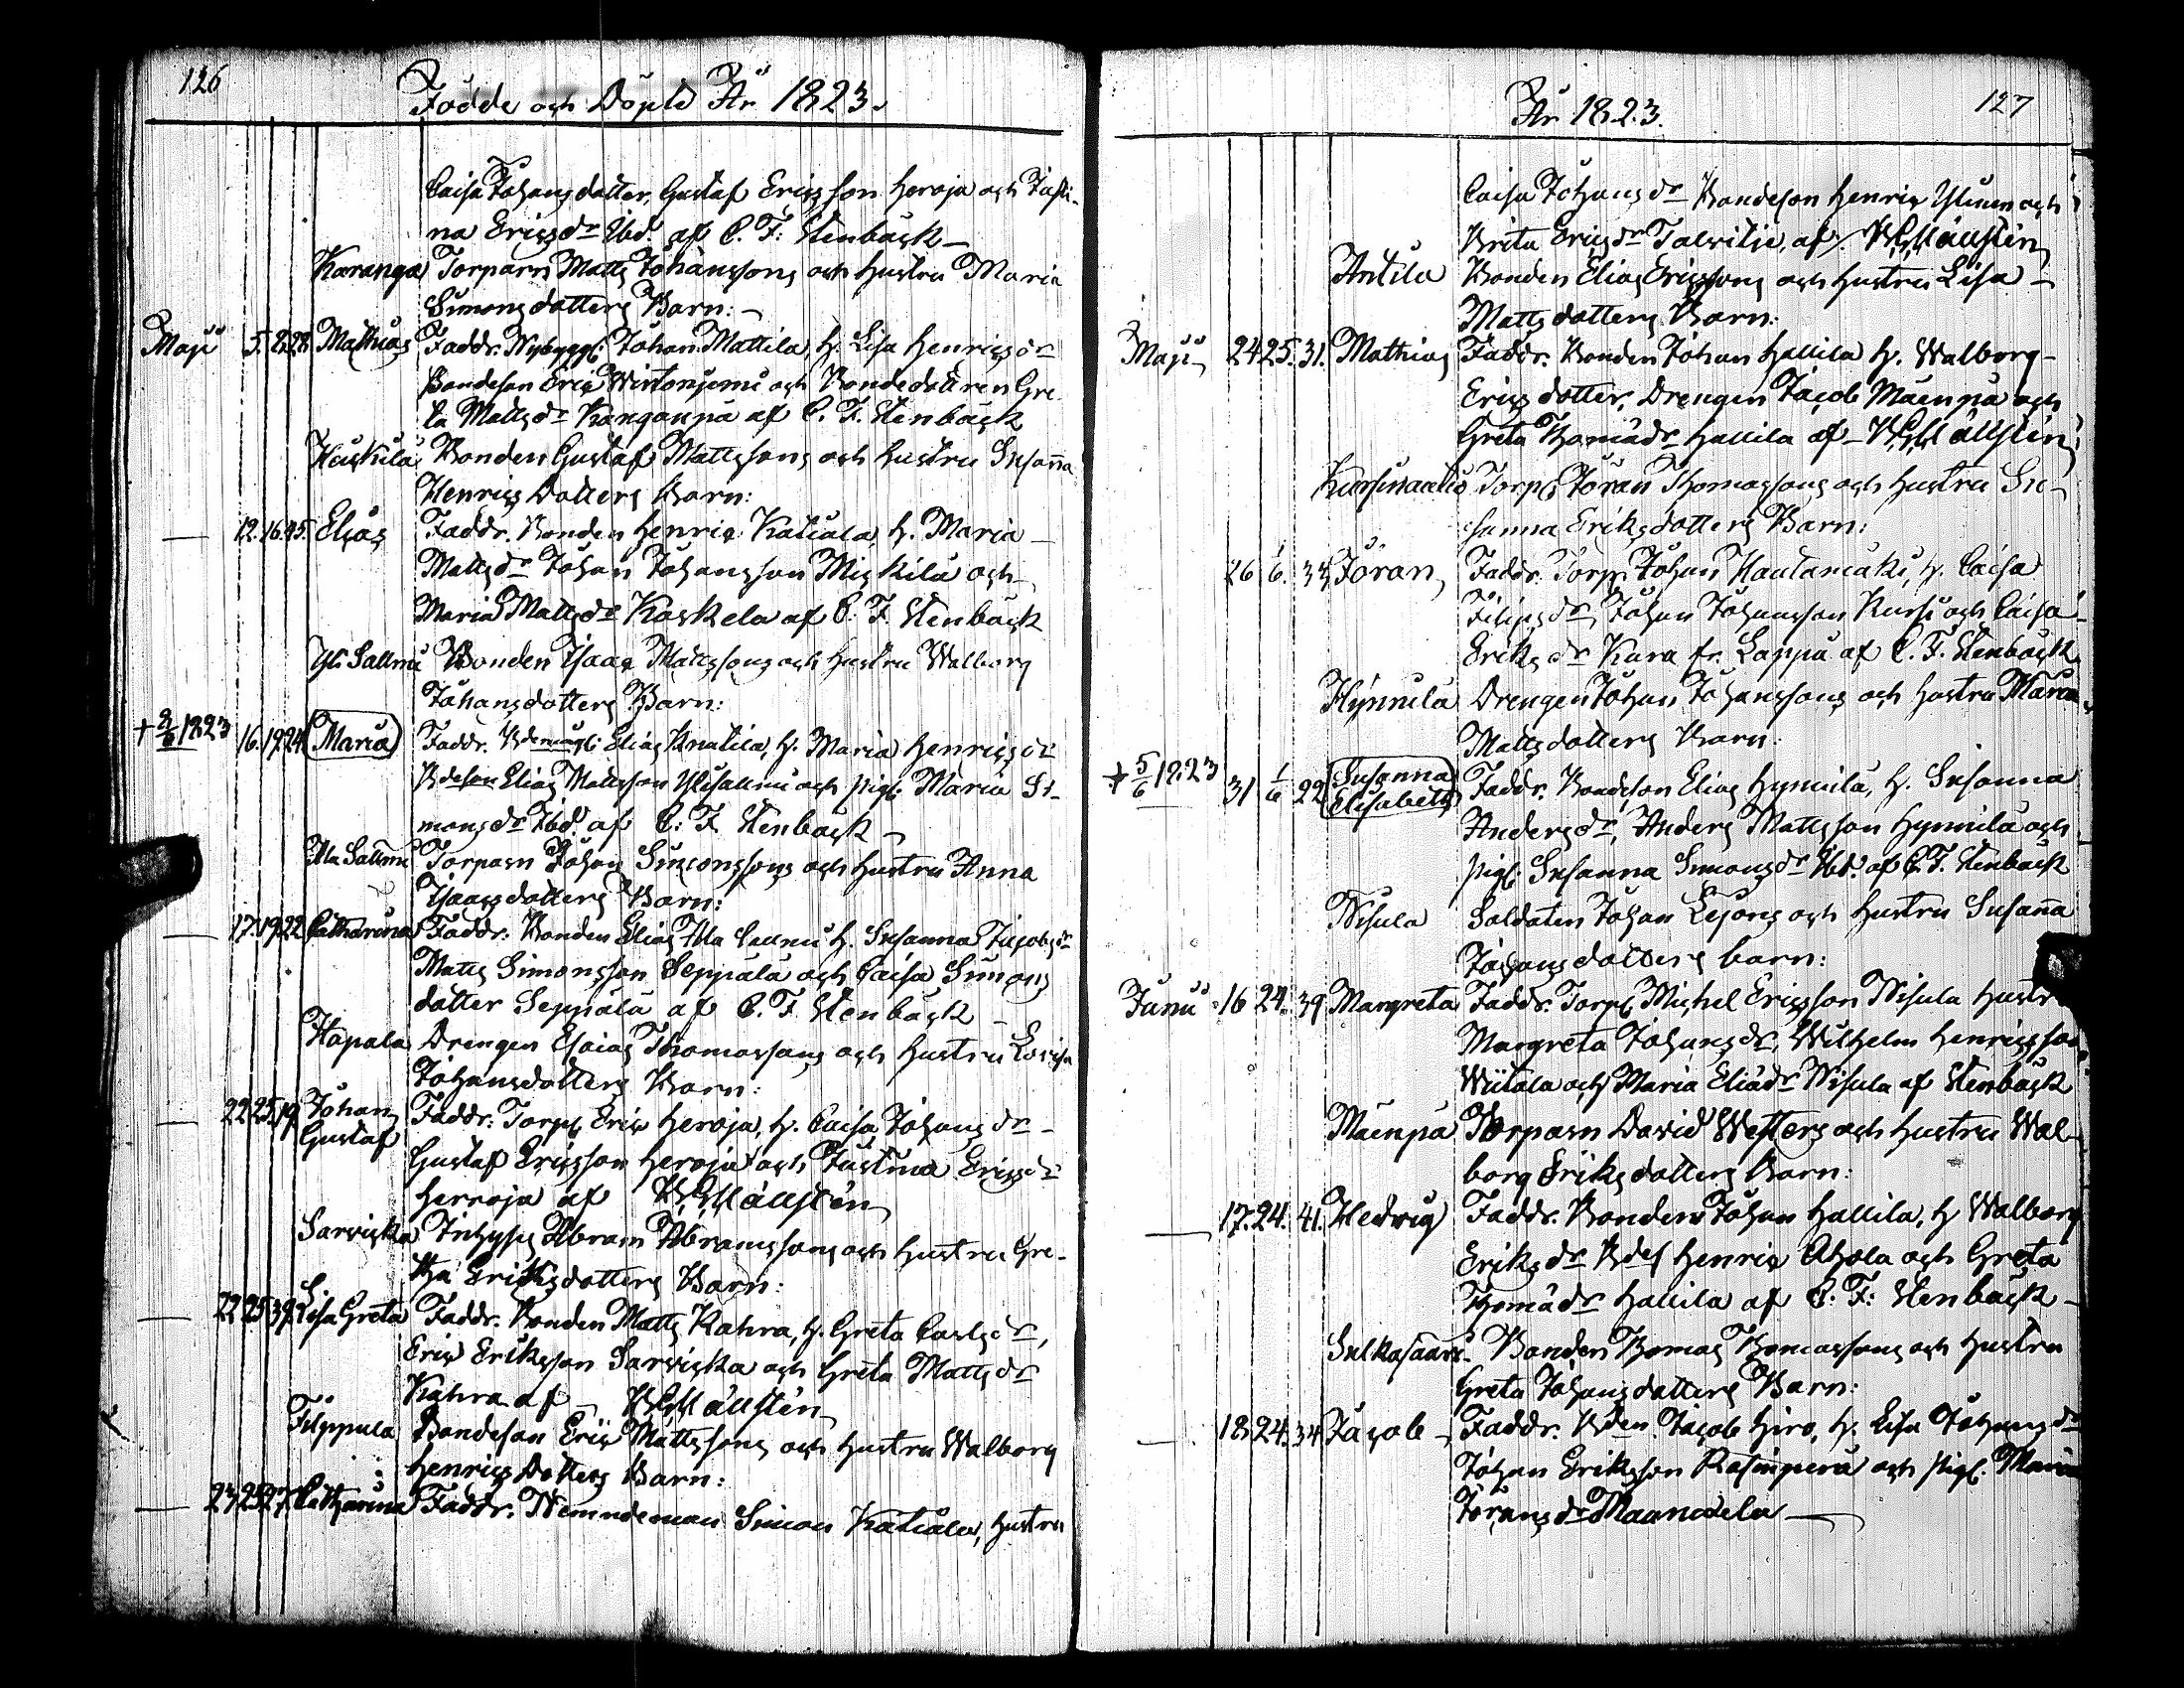 126
Födde och Döpte År 1823.
Caisa Johansdotter, Gustaf Ericsson Heroja och Justi-
na Ericsdr Ibd. af C. F. Stenbäck
Karanga Torparn Matts Johanssons och Hustru Maria
Simonsdotters Barn:
Maji 5. 8. 28. Mathias Faddr. Nybygg. Johan Mattila, H. Lisa Henricsdr
Bondeson Eric Wirtonjemi och Bondedottren Gre
ta Mattsdr Kanganpä af C. F. Stenbäck
Bonden Gustaf Mattssons och Hustru Susanna
Henrics Dotters Barn:
12. 16. 45. Elias Faddr. Bonden Henric Katiala, H. Maria
Mattsdr Johan Johansson Miskila och
Maria Mattsdr Koskela af C. F. Stenbäck
Yli Sallmi Bonden Isaac Mattssons och Hustru Walborg
Johansdotters Barn:
+ 2/6 1823 16. 19. 24. Maria Faddr. Elias Knutila, H. Maria Henricsdr
Bdeson Elias Mattsson Ylisallmi och pig. Maria Si-
monsdr Ibd. af C. F. Stenbäck
Ala Sallmi Torparn Johan Simonssons och Hustru Anna
Isaacsdotters Barn:
17. 19. 22. Catharina Faddr. Bonden Elias Ala Sallmi H. Susanna Jacobsdr
Matts Simonsson Seppälä och Caisa Simons
dotter Seppälä af C. F. Stenbäck
Hapala Drengen Esaias Thomassons och Hustru Lovisa
Johansdotters Barn:
22 25 19 Johan Faddr: Torp. Eric Heroja, H. Caisa Johansdr
Gustaf
Gustaf Ericsson Heroja och Justina Ericsdr
Herroja af Mällstén
Sarviska Inhyses Abram Abramssons och Hustru Gre-
tha Eriksdotters Barn:
22 25 39. Lisa Greta Faddr. Bonden Matts Kahra, H. Greta Carlsdr,
Eric Eriksson Sarviska och Greta Mattsdr
Kahra af Mällstén
Filppula Bondeson Eric Mattssons och Hustru Walborg
Henrics Dotters Barn:
23 25 27. Catharina Faddr. Nemndeman Simon Katiala, Hustru
År 1823.
127
Caisa Johansdr Bondeson Henric Ylinen och
Brita Ericsdr Talvitie, af Mällstén
Antila Bonden Elias Ericssons och Hustru Lisa
Mattsdotters Barn:
Maji 24 25. 31. Mathias Faddr. Bonden Johan Hallila H. Walborg
Ericsdotter, Drengen Jacob Mäenpä och
Greta Thomädr Hallila af Mällstén
Torp. Jöran Thomassons och Hustru Su-
sanna Eriksdotters Barn:
26 1/6. 34 Jöran Faddr. Torp. Johan Hautamäki, H. Caisa
Filipsdr, Johan Johansson Kursi och Caisa
Eriksdr Kara fr. Lappa af C. F. Stenbäck
Hynnilä Drengen Johan Johanssons och Hustru Maria
Mattsdotters Barn:
+ 5/6 1823 31 1/6 22 Susanna Elisabeth Faddr. Bondeson Elias Hynnilä, H. Susanna
Andersdr, Anders Mattsson Hynnilä och
pig. Susanna Simonsdr Ibd. af C. F. Stenbäck
Nisula Soldaten Johan Lejons och Hustru Susanna
Johansdotters barn:
Junii 16 24. 39 Margreta Faddr. Torp. Michel Ericsson Nisula Hustru
Margreta Johansdr, Wilhelm Henricsson
Wiitala och Maria Eliädr Nisula af Stenbäck
Mäenpä Torparn David Westers och Hustru Wal-
borg Eriksdotters Barn:
17. 24. 41. Hedwig Faddr. Bonden Johan Hallila, H Walborg
Eriksdr Bdes Henric Ahola och Greta
Thomädr Hallila af C: F: Stenbäck
Sulkasaari Bonden Thomas Thomassons och Hustru
Greta Johansdotters Barn:
18. 24. 34 Jacob Faddr. Bden Jacob Hiro, H. Lisa Johansdr
Johan Eriksson Rasinperä och pig. Maria
Jöransdr Maanselä